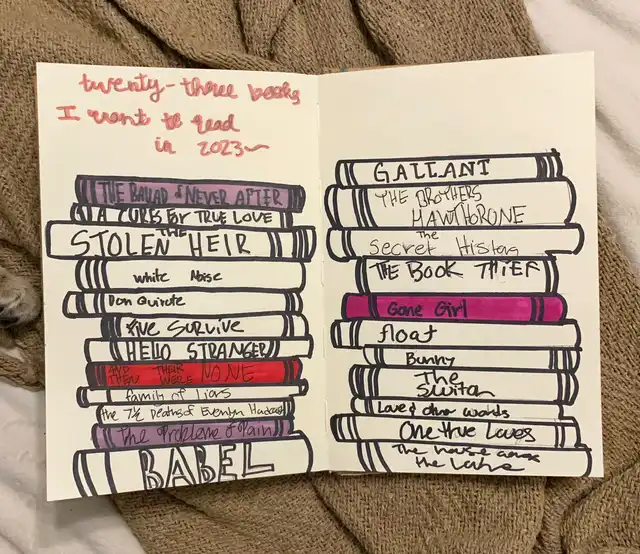 twenty-three books
I want to read
in 2023~
THE BALLAD of NEVER AFTER
A CURSE for TRUE LOVE
THE
STOLEN HEIR
White Noise
Don Quixote
FIVE SURVIVE
HELLO STRANGER
AND
THEN THEIR WERE NONE
family of liars
the 7½ Deaths of Evenlyn Hardcastle
The Problem of Pain
BABEL
GALLANT
THE BROTHERS
HAWTHORNE
The
Secret History
THE BOOK THIEF
Gone Girl
float
Bunny
The
Switch
Love & other words
One true Loves
The house across
the Lake